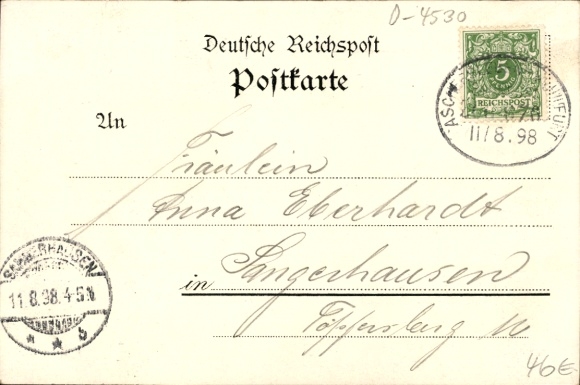 D-4530
Deutsche Reichspost
Postkarte
5
REICHSPOST
11/8.98
An
Fräulein
Anna Eberhardt
in Sangerhausen
Töpfersberg
SANGERHAUSEN
11.8.98.4-5
* * b
46€